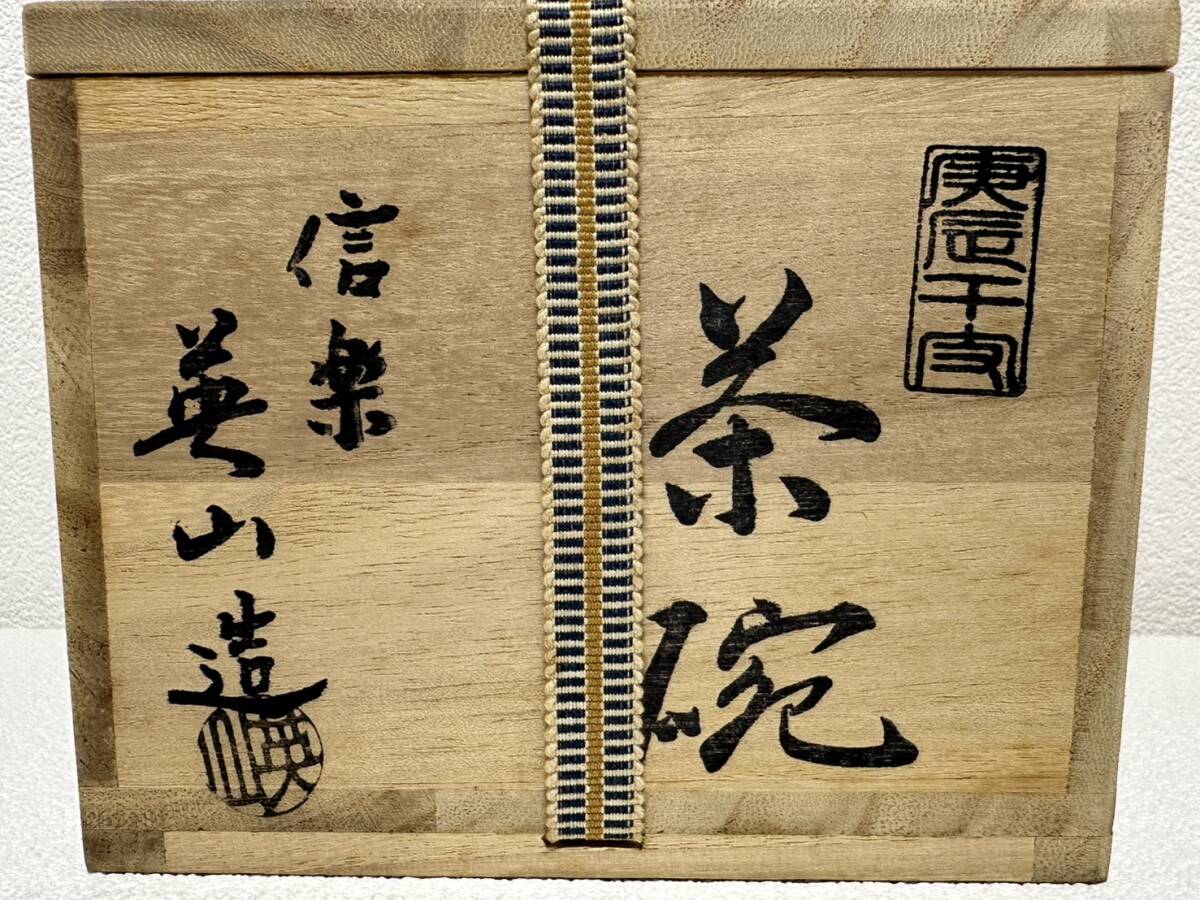 庚辰干支
茶碗
信楽
英山造
英山